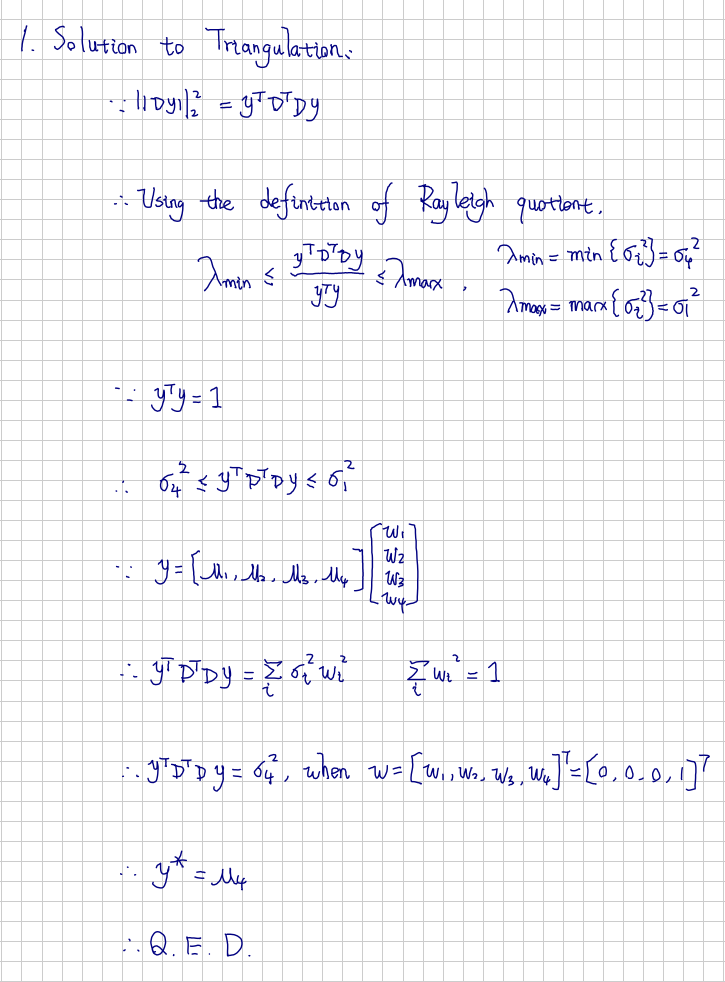 1. Solution to Triangulation:
∵ ||Dy||₂² = yᵀDᵀDy
∴ Using the definition of Rayleigh quotient,
λmin ≤ yᵀDᵀDy / yᵀy ≤ λmax , λmin = min{σᵢ²} = σ₄²
λmax = max{σᵢ²} = σ₁²
∵ yᵀy = 1
∴ σ₄² ≤ yᵀDᵀDy ≤ σ₁²
∵ y = [μ₁, μ₂, μ₃, μ₄] [w₁ w₂ w₃ w₄]
∴ yᵀDᵀDy = Σᵢ σᵢ² wᵢ² Σᵢ wᵢ² = 1
∴ yᵀDᵀDy = σ₄², when w = [w₁, w₂, w₃, w₄]ᵀ = [0, 0, 0, 1]ᵀ
∴ y* = μ₄
∴ Q. E. D.